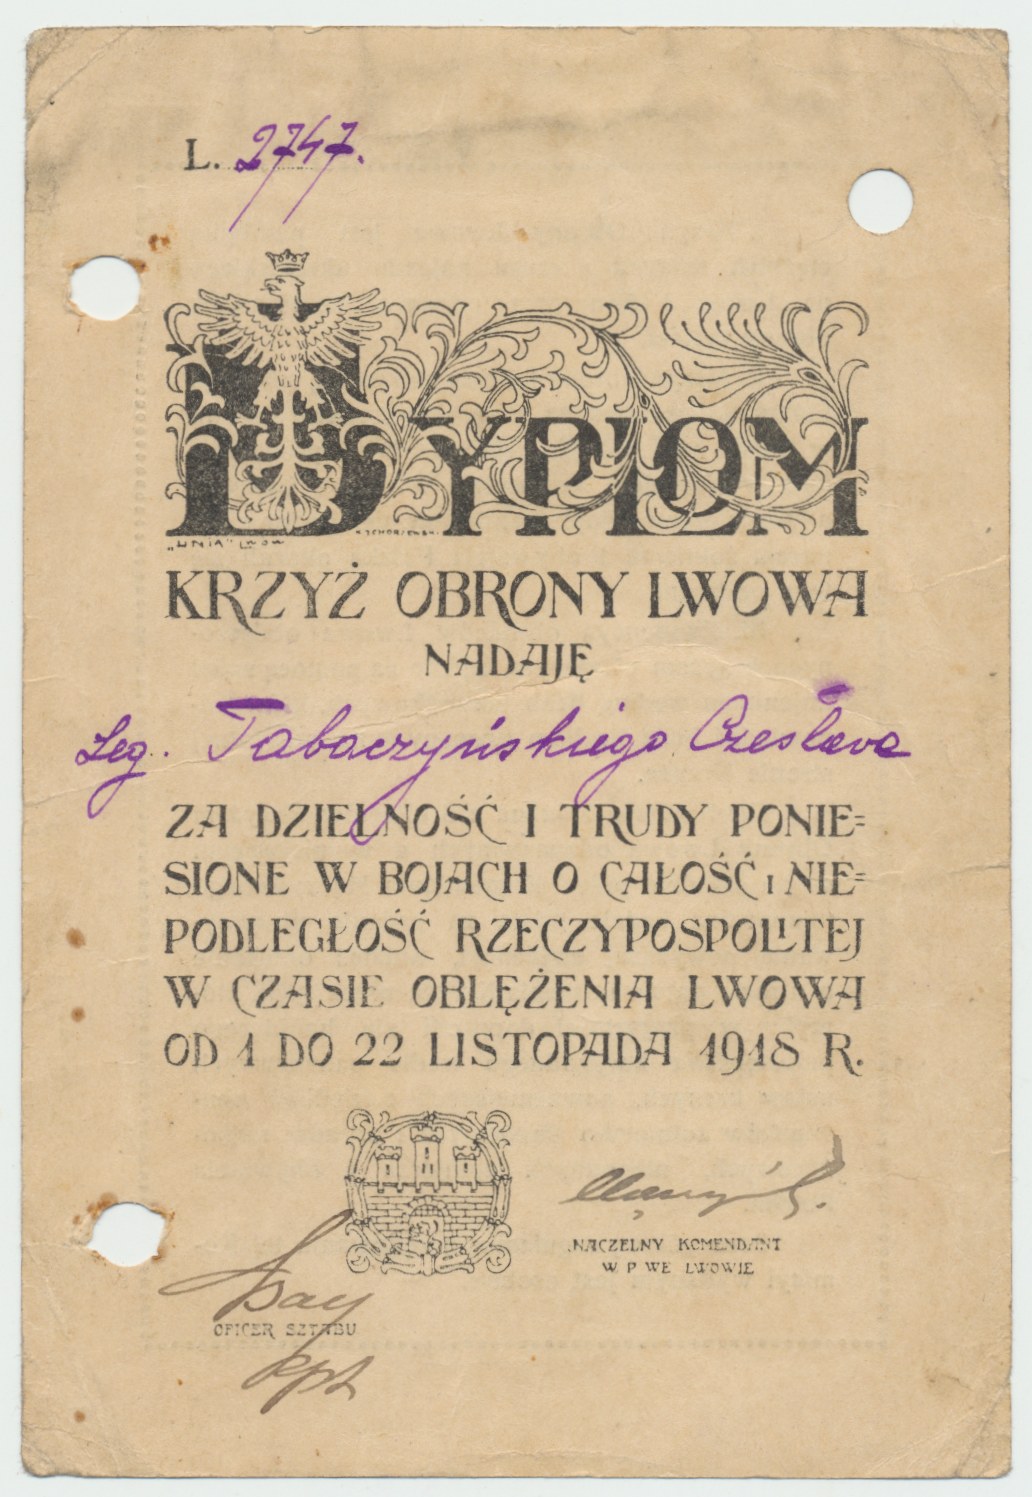 L. 2747.
DYPLOM
"UNIA" LWÓW
KRZYŻ OBRONY LWOWA
NADAJĘ
Leg. Tabaczyńskiego Czesława
ZA DZIELNOŚĆ I TRUDY PONIE=
SIONE W BOJACH O CAŁOŚĆ I NIE=
PODLEGŁOŚĆ RZECZYPOSPOLITEJ
W CZASIE OBLĘŻENIA LWOWA
OD 1 DO 22 LISTOPADA 1918 R.
NACZELNY KOMENDANT
W P WE LWOWIE
OFICER SZTABU
kpt